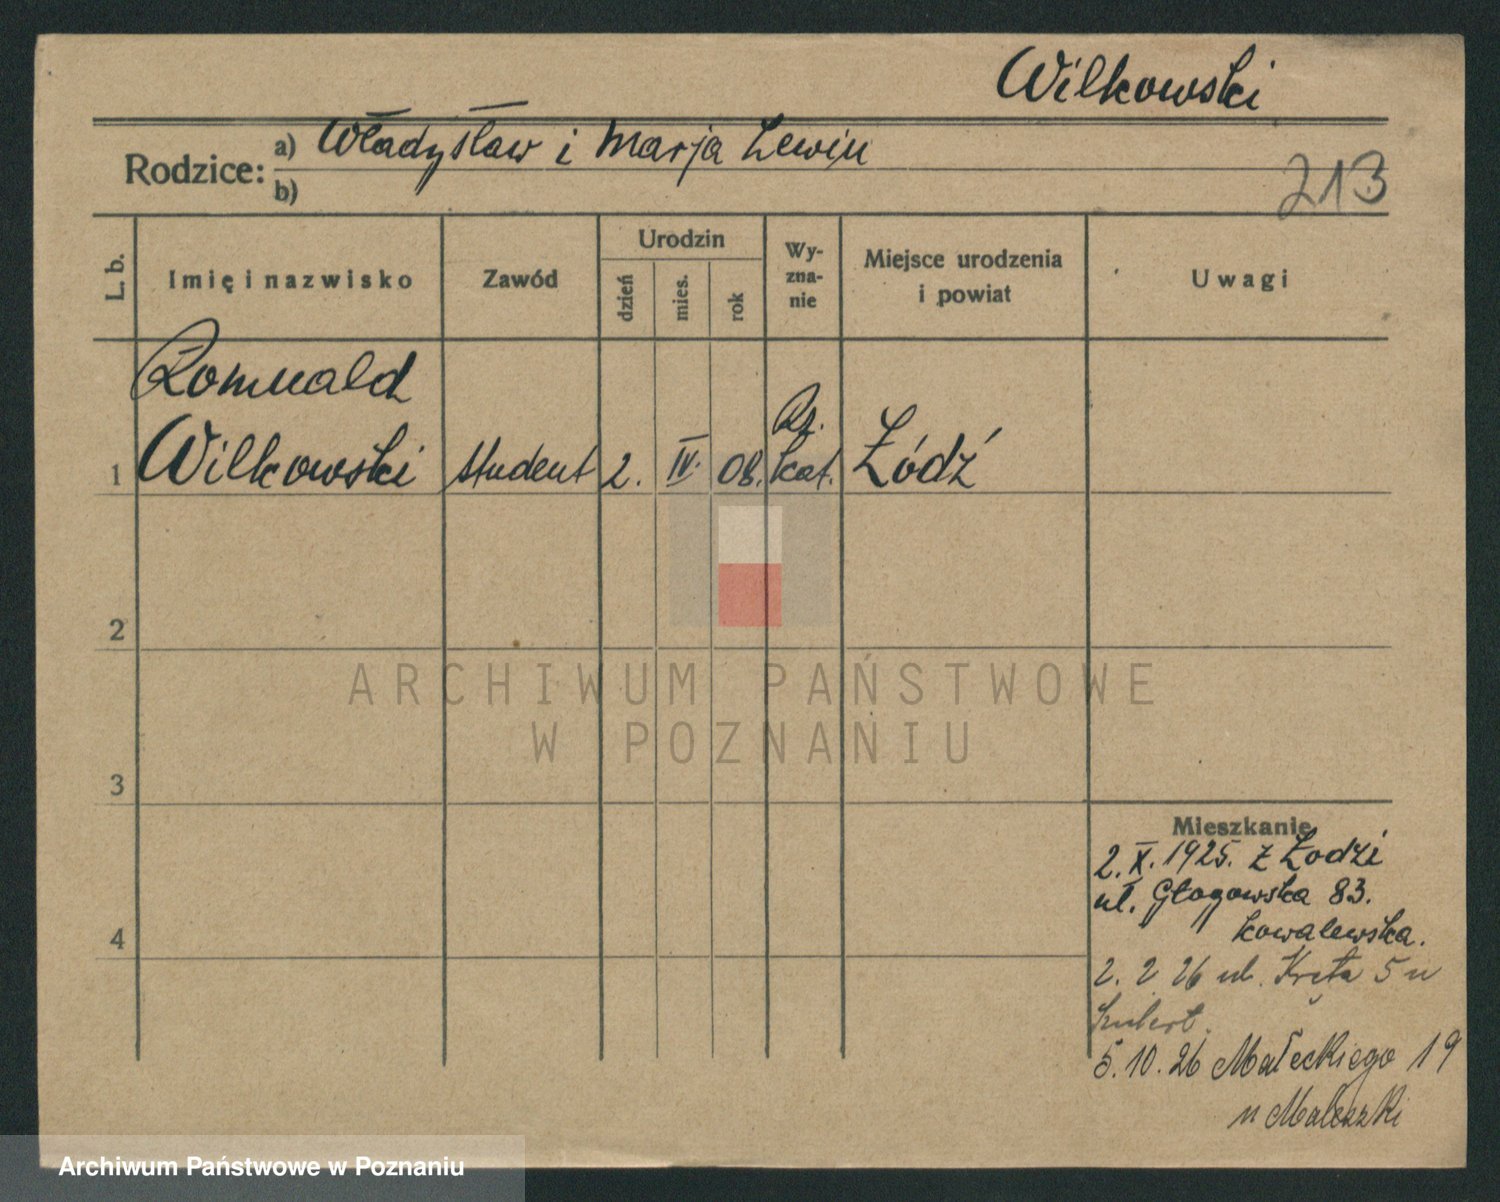 Wilkowski
Rodzice: a) Władysław i Marja Lewin
b)
213
L. b.
Imię i nazwisko
Zawód
Urodzin
dzień
mies.
rok
Wy-
zna-
nie
Miejsce urodzenia
i powiat
Uwagi
Romuald
Rz.
1 Wilkowski student 2. IV. 08. kat. Łódź
2
3
4
ARCHIWUM PAŃSTWOWE
W POZNANIU
Mieszkanie
2. X. 1925. z Łodzi
ul. Głogowska 83.
Kowalewska.
2. 2 26 ul. Kręta 5 u
5. 10. 26 Małeckiego 19
u Małeszki
Archiwum Państwowe w Poznaniu